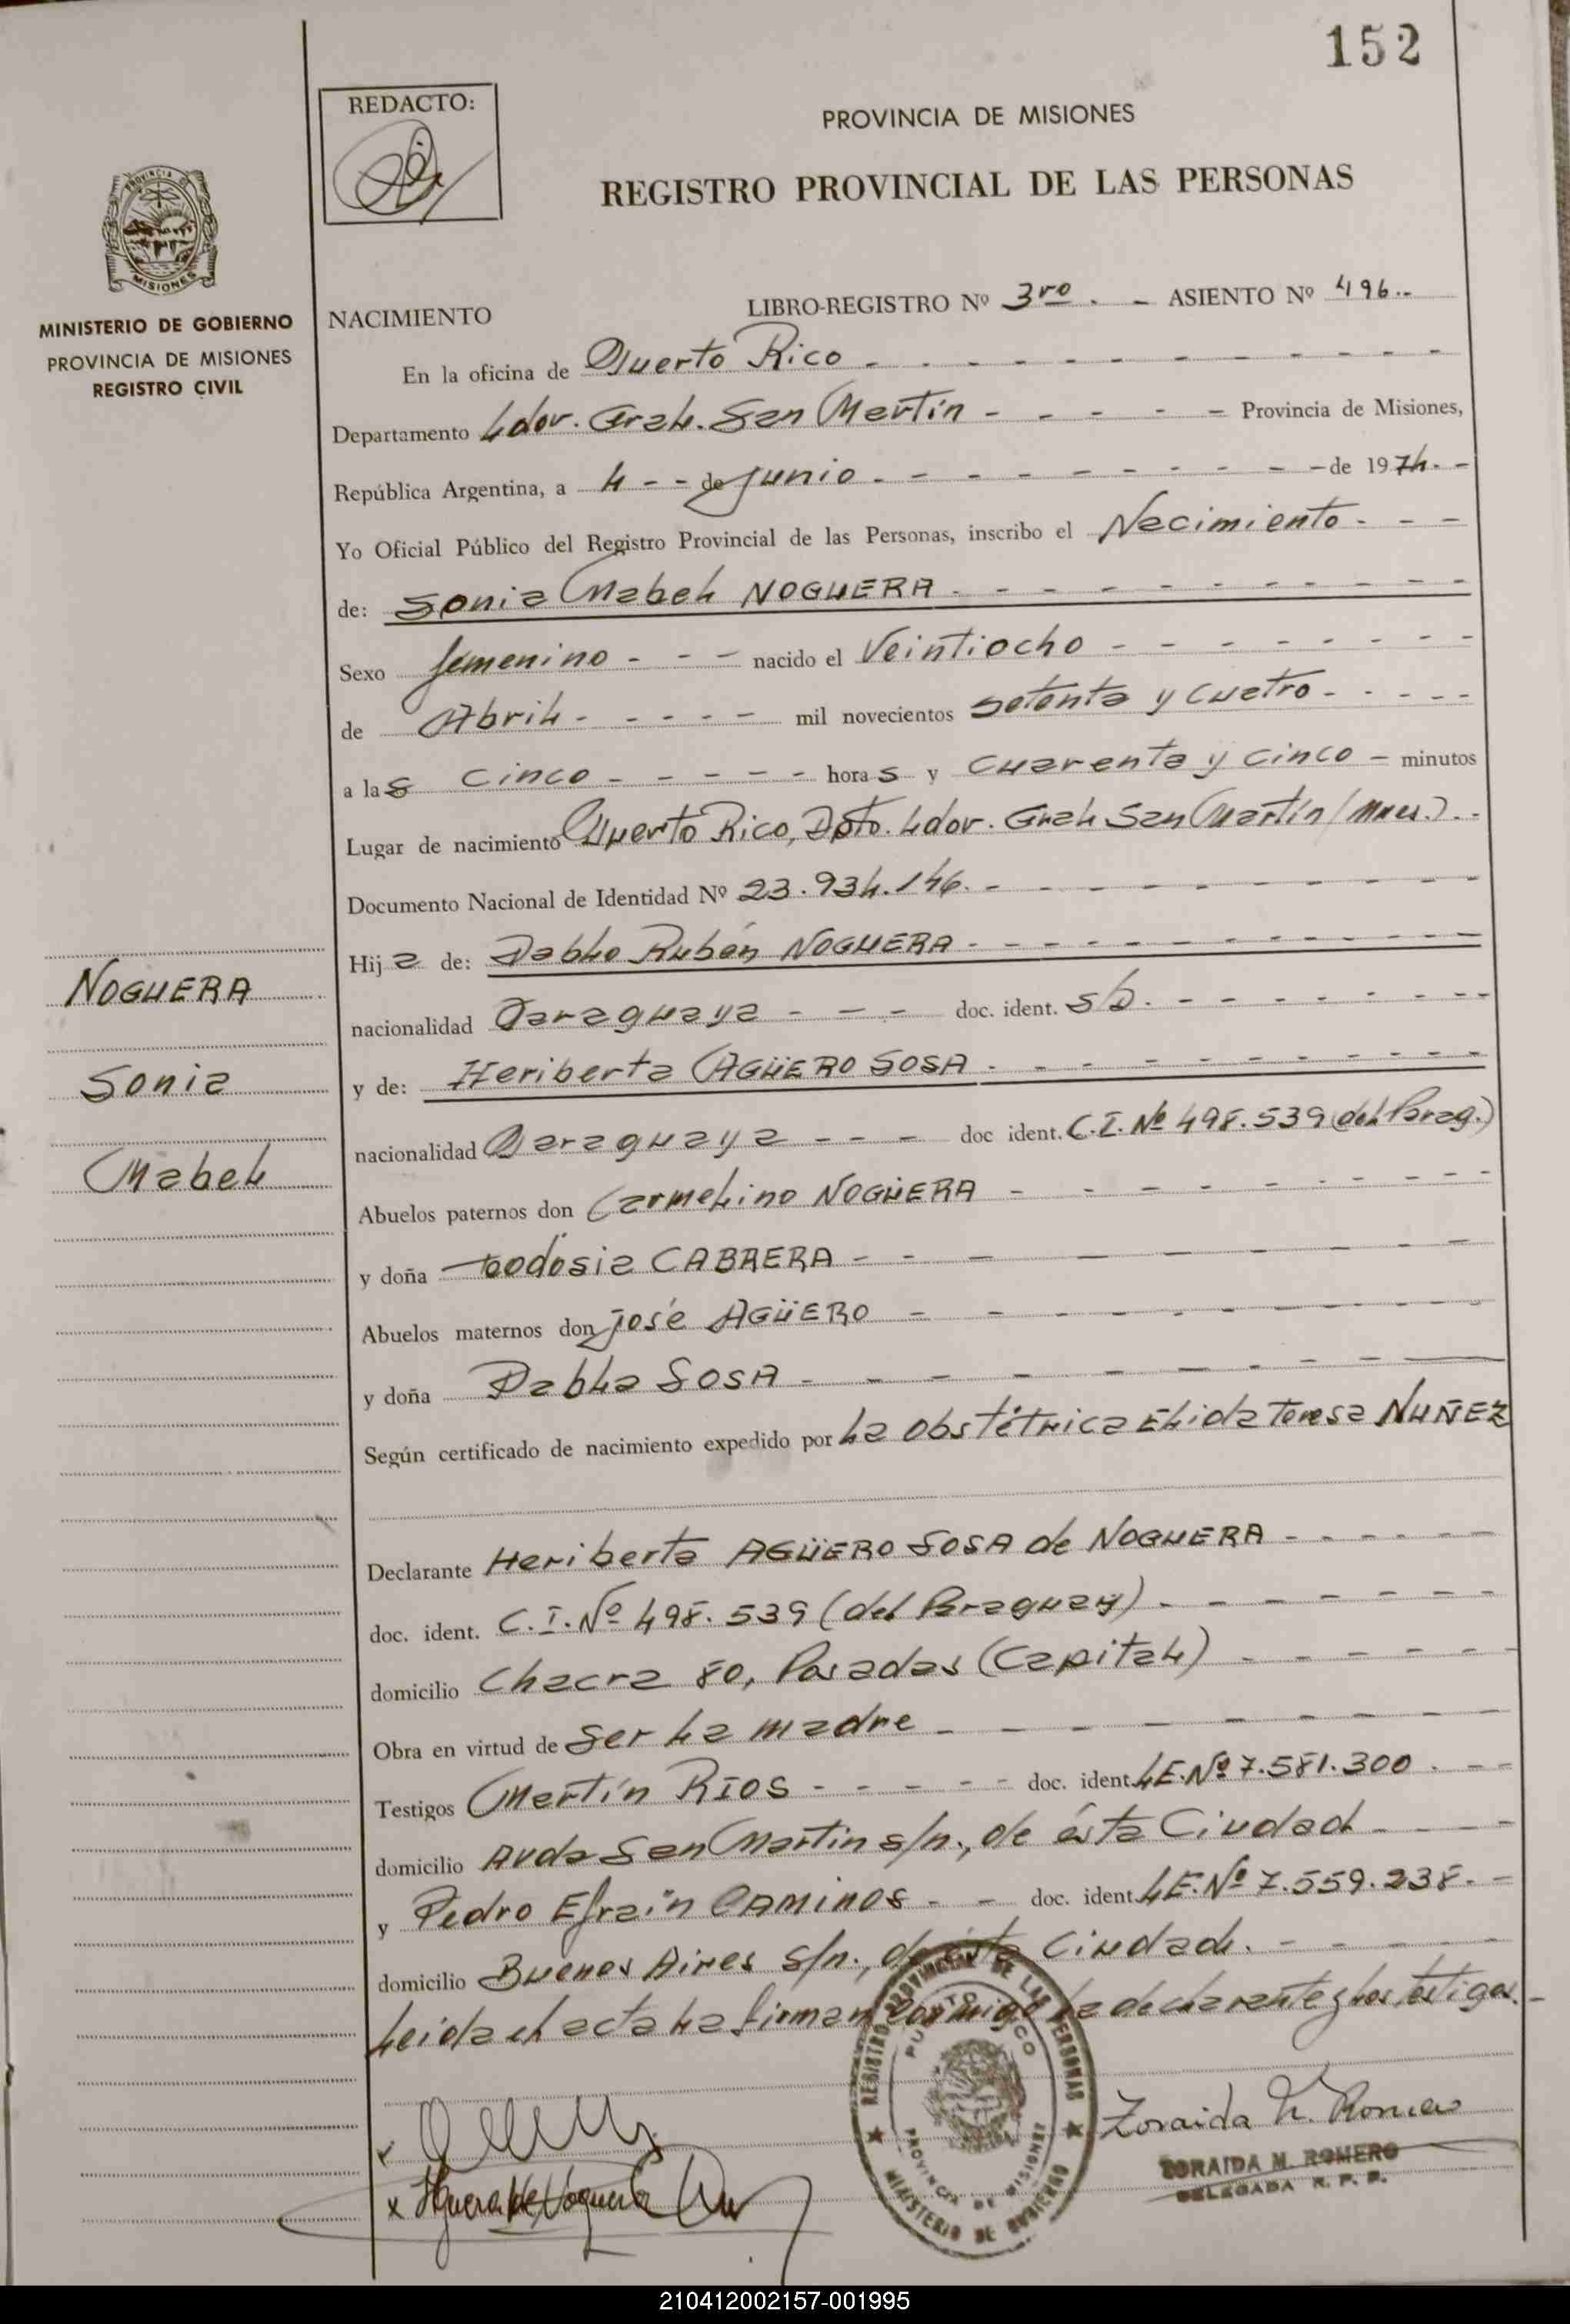 152
REDACTO:
PROVINCIA DE MISIONES
REGISTRO PROVINCIAL DE LAS PERSONAS
PROVINCIA DE
MISIONES
MINISTERIO DE GOBIERNO
PROVINCIA DE MISIONES
REGISTRO CIVIL
NACIMIENTO LIBRO-REGISTRO Nº 3ro. - ASIENTO Nº 496.-
En la oficina de Puerto Rico
Departamento Ldor. Gral. San Martín - - - - - Provincia de Misiones,
República Argentina, a 4 - - de junio - - - - - - - - - de 1974. -
Yo Oficial Público del Registro Provincial de las Personas, inscribo el Nacimiento - - -
de: Sonia Mabel NOGUERA
Sexo femenino - - - nacido el Veintiocho
de Abril - - - - - mil novecientos setenta y cuatro
a las cinco - - - - - horas y cuarenta y cinco - minutos
Lugar de nacimiento Puerto Rico, Dpto. Ldor. Gral San Martín (Mnes.).-
Documento Nacional de Identidad Nº 23.934.146.-
Hija de: Pablo Rubén NOGUERA
nacionalidad Paraguaya - - - doc. ident. s/d.
y de: Heriberta AGÜERO SOSA
nacionalidad Paraguaya - - - doc ident. C.I. Nº 498.539 (del Parag.)
Abuelos paternos don Carmelino NOGUERA
y doña teodosia CABRERA
Abuelos maternos don josé AGÜERO
y doña Pabla SOSA
Según certificado de nacimiento expedido por la Obstétrica Elida Teresa NUÑEZ
Declarante Heriberta AGÜERO SOSA de NOGUERA
doc. ident. C.I. Nº 498.539 (del Paraguay)
domicilio Chacra 80, Posadas (Capital)
Obra en virtud de ser la madre
Testigos Martín RIOS - - - - - doc. ident. L.E. Nº 7.581.300
domicilio Avda San Martin s/n., de ésta Ciudad
y Pedro Efraín CAMINOS - - doc. ident. L.E. Nº 7.559.238.
domicilio Buenos Aires s/n., de ésta Ciudad.
Leida el acta la firman conmigo la declarante y los testigos.
NOGUERA
Sonia
Mabel
x
x Aguero de Noguera
REGISTRO PROVINCIAL DE LAS PERSONAS
PUERTO RICO
PROVINCIA DE MISIONES
MINISTERIO DE GOBIERNO
Zoraida M. Romero
ZORAIDA M. ROMERO
DELEGADA R. P. P.
210412002157-001995